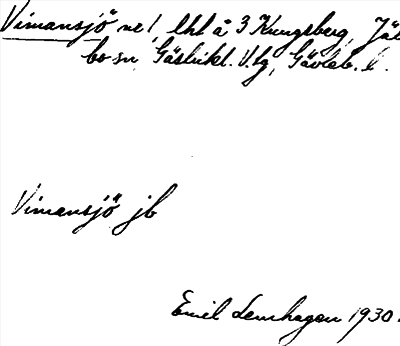 Vimansjö nr 1, lht å 3 Kungsberg, Jär
bo sn, Gästrikl. V. tg, Gävleb. l.
Vimansjö jb
Emil Lenhagen 1930.